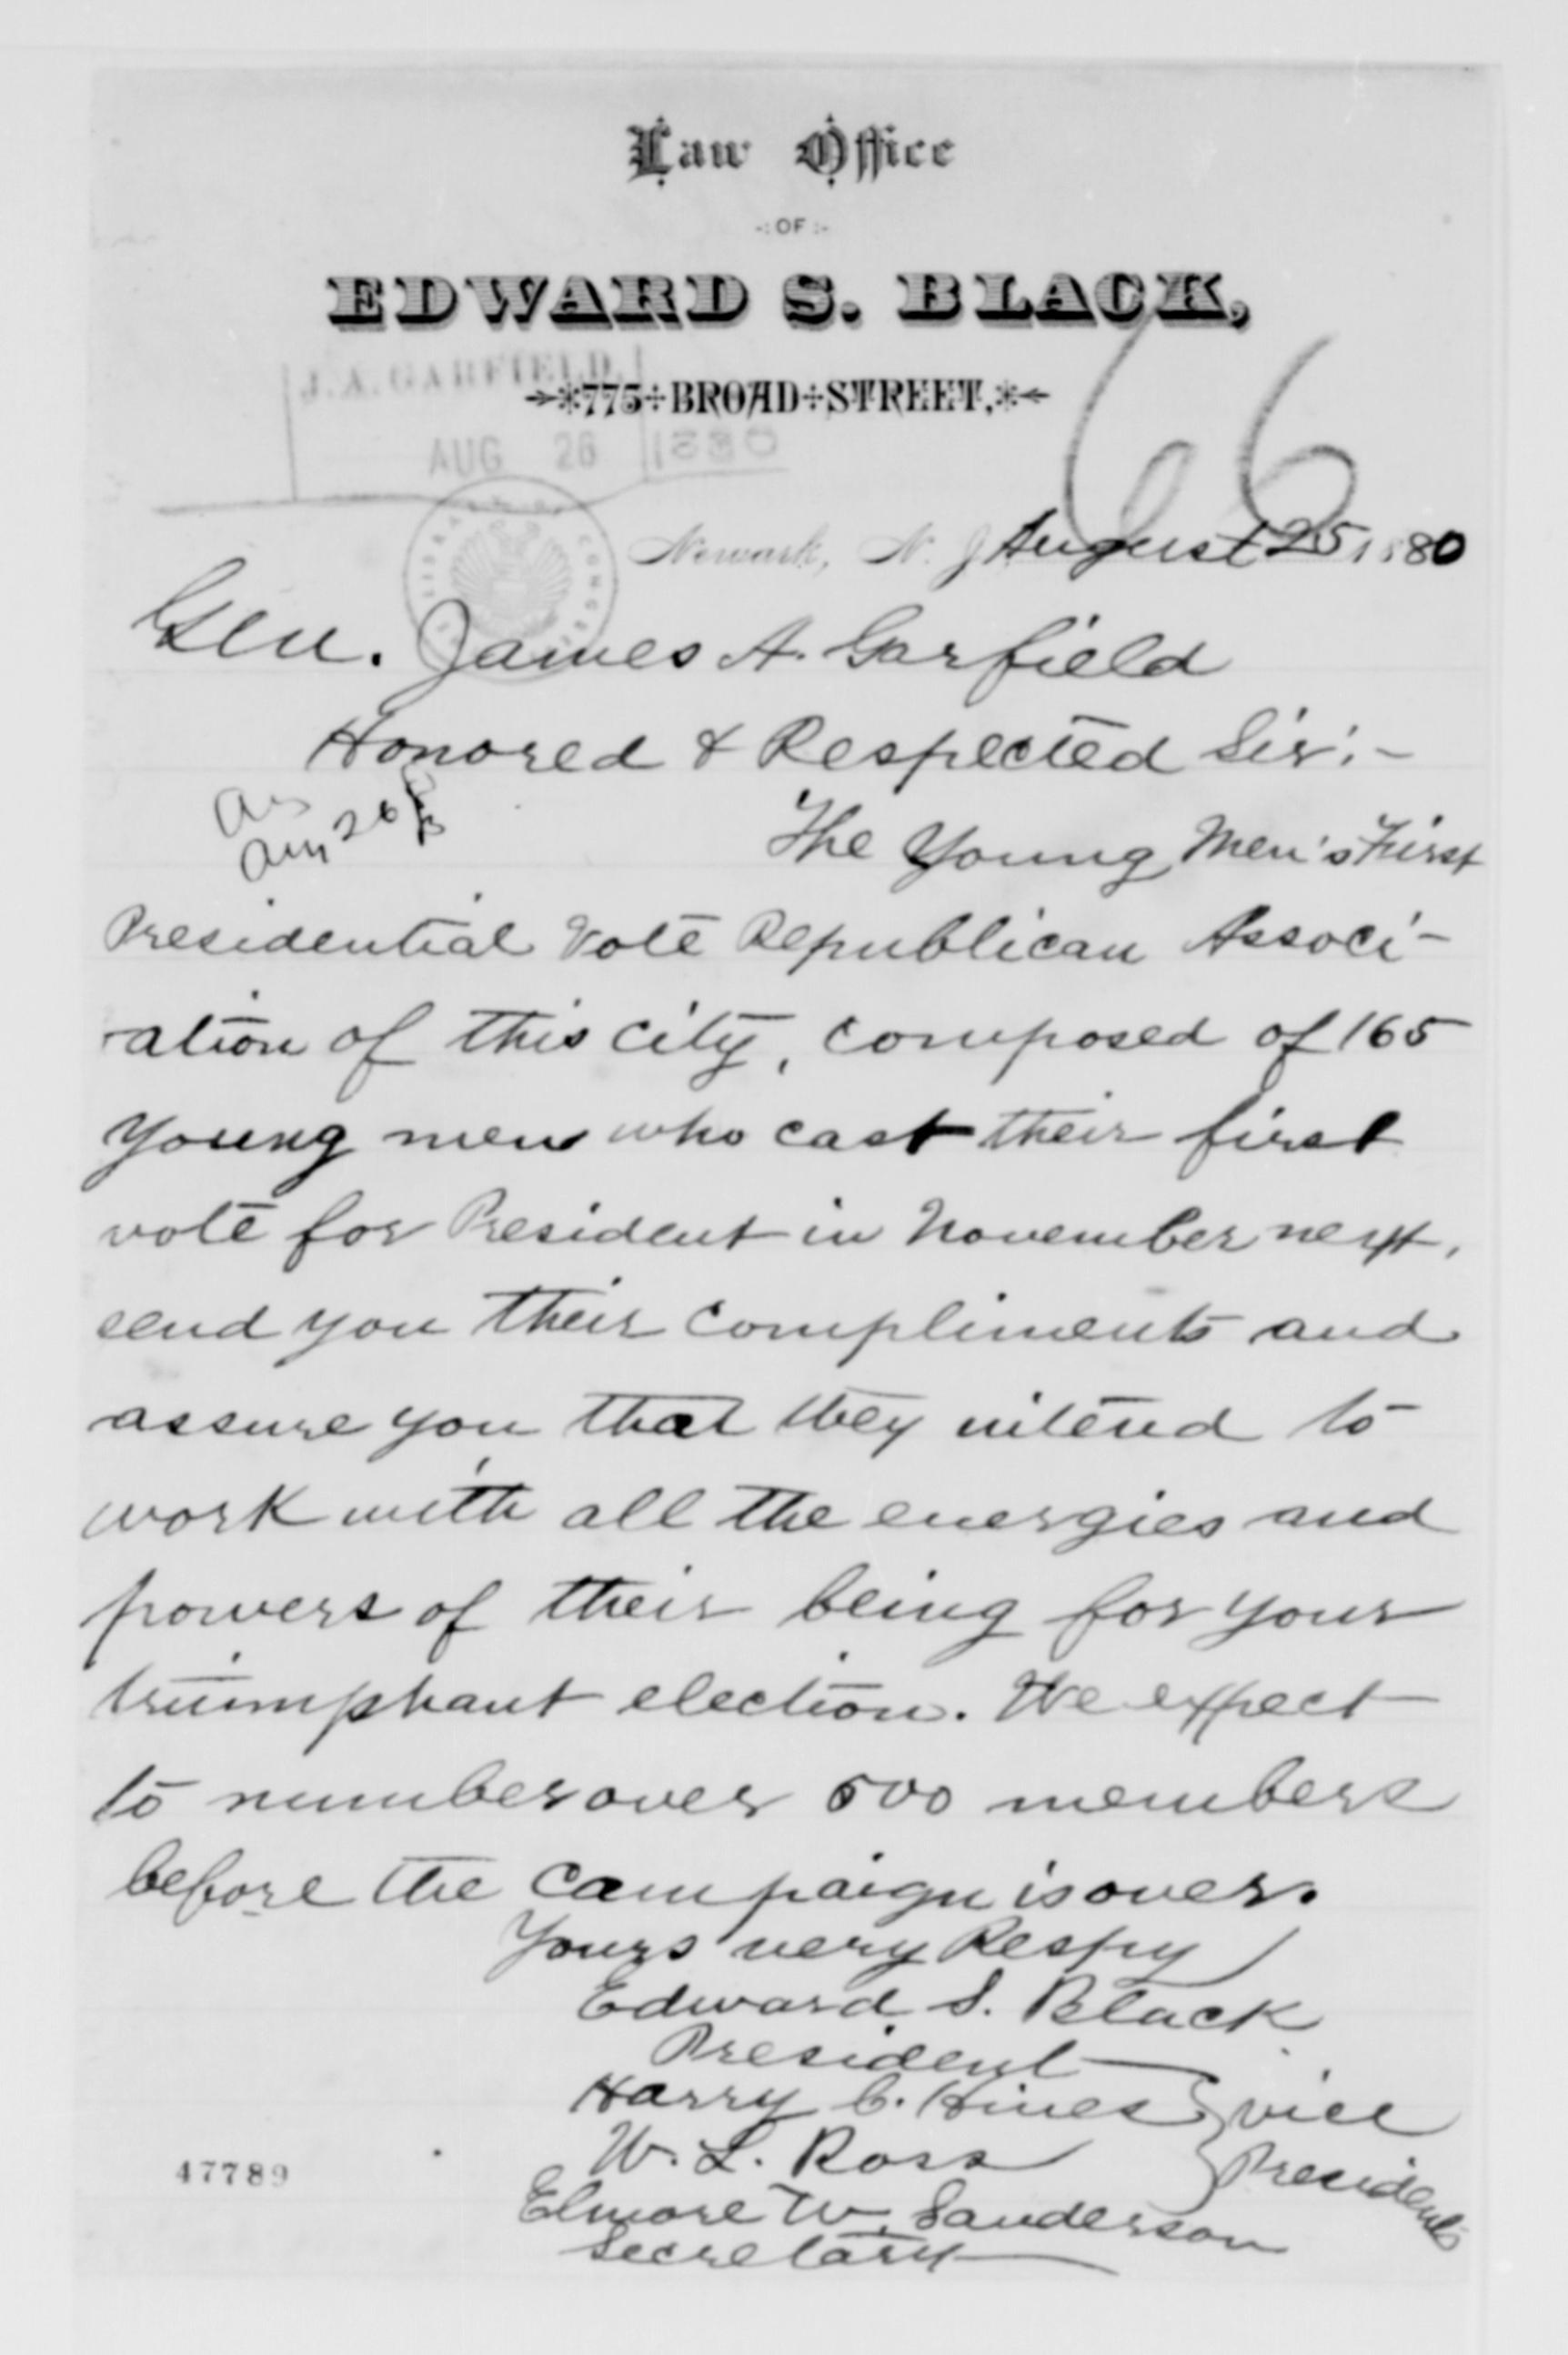 Law Office
-: OF :-
EDWARD S. BLACK,
775 BROAD STREET,
J. A. GARFIELD.
AUG 26 1880
66
Newark, N. J. August 25, 1880
Gen. James A. Garfield
Honored & Respected Sir:-
Aug 26
The Young Men's First
Presidential Vote Republican Associ-
-ation of this city, composed of 165
young men who cast their first
vote for President in November next,
send you their compliments and
assure you that they intend to
work with all the energies and
powers of their being for your
triumphant election. We expect
to number over 500 members
before the campaign is over.
Yours very Respy
Edward S. Black
President
Harry C. Hines } Vice
W. L. Ross } Presidents
Elmore W. Sanderson
Secretary
47789